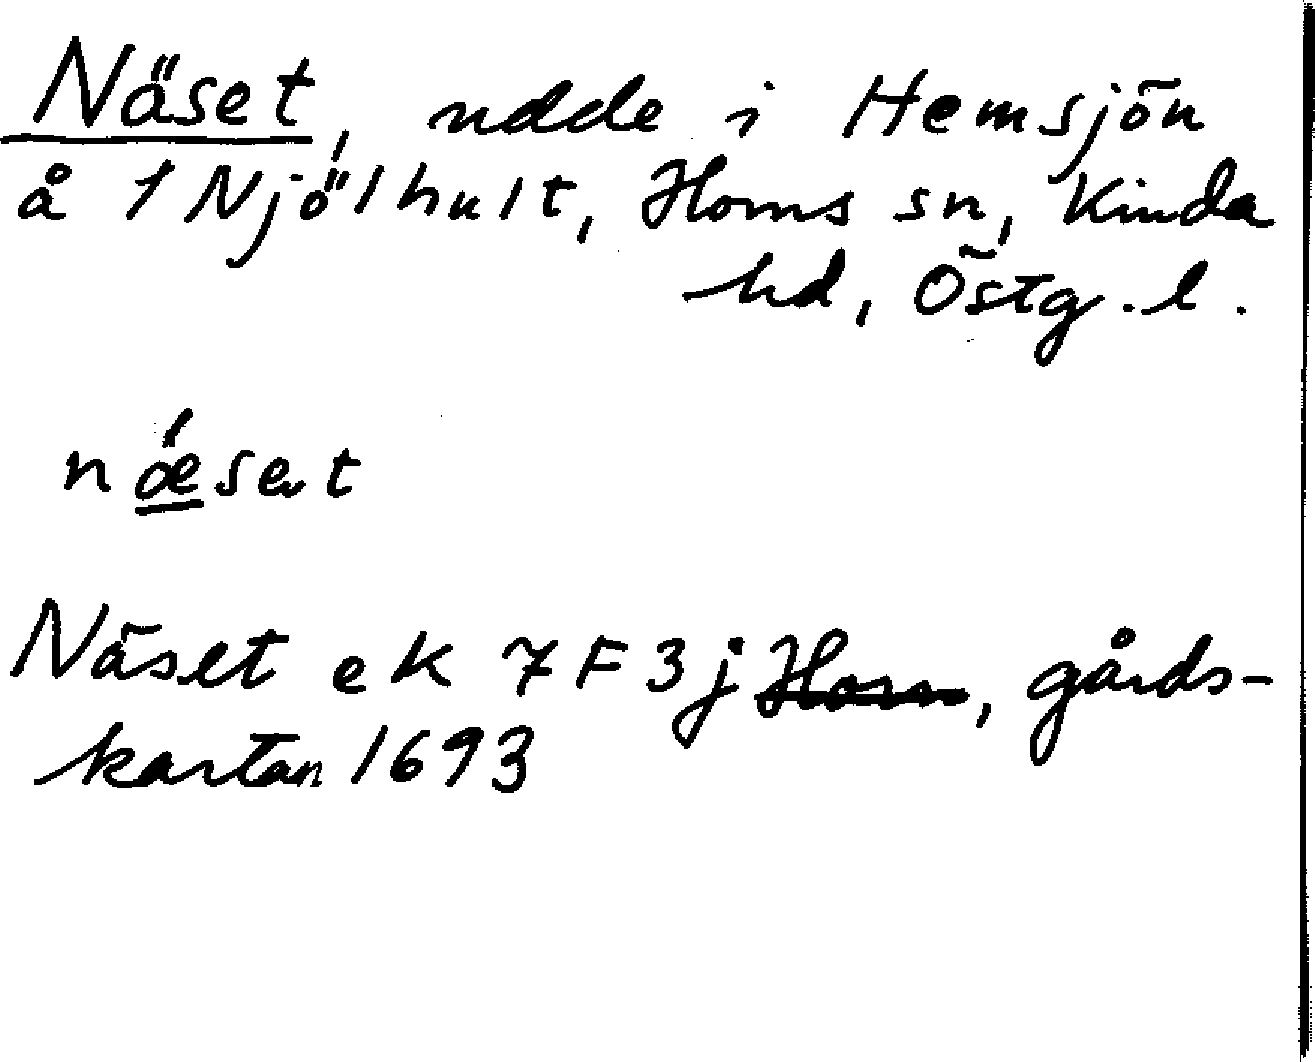 Näset, udde i Hemsjön
å 1 Njölhult, Horns sn, Kinda
hd, Östg. l.
nǽset
Näset ek 7F3j Horn, gårds-
kartan 1693